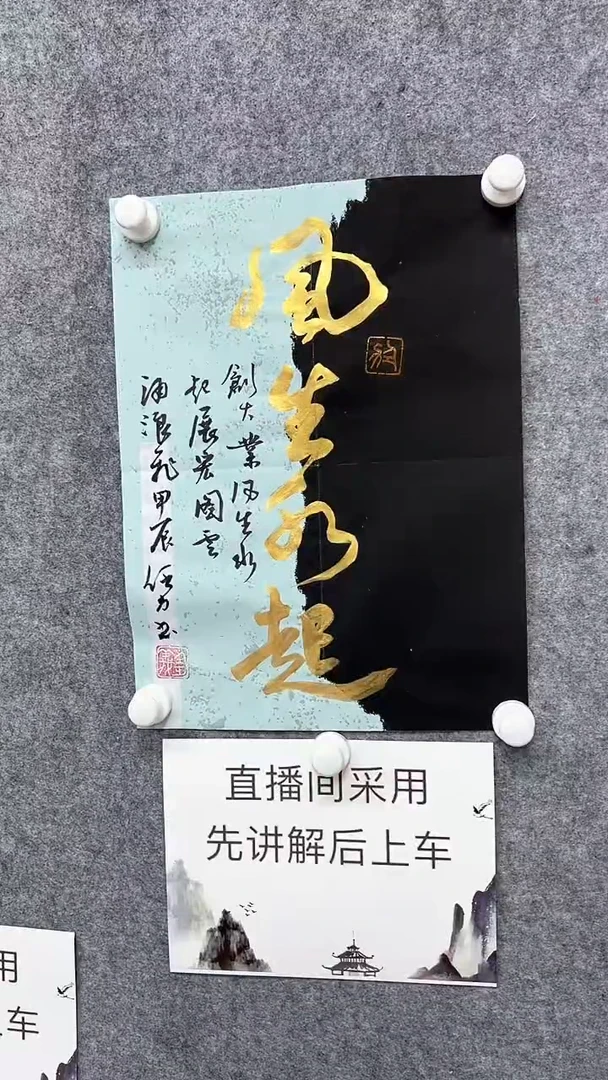 風生水起
創大業风生水
起展宏圖雲
涌浪飛甲辰任力书
直播间采用
先讲解后上车
用
上车